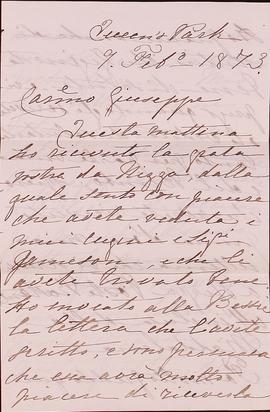 Queen's Park
7. Feb.º 1873.
Carêmo Giuseppe
Questa mattina
ho ricevuto la grata
vostra da Nizza, dalla
quale sento con piacere
che avete veduta i
miei cugini i Sigi
Jameson, e che li
avete trovato bene
Ho inviato alla Bessie
la lettera che l'avete
scritto, e sono persuasa
che ella avrà molto
piacere di riceverla